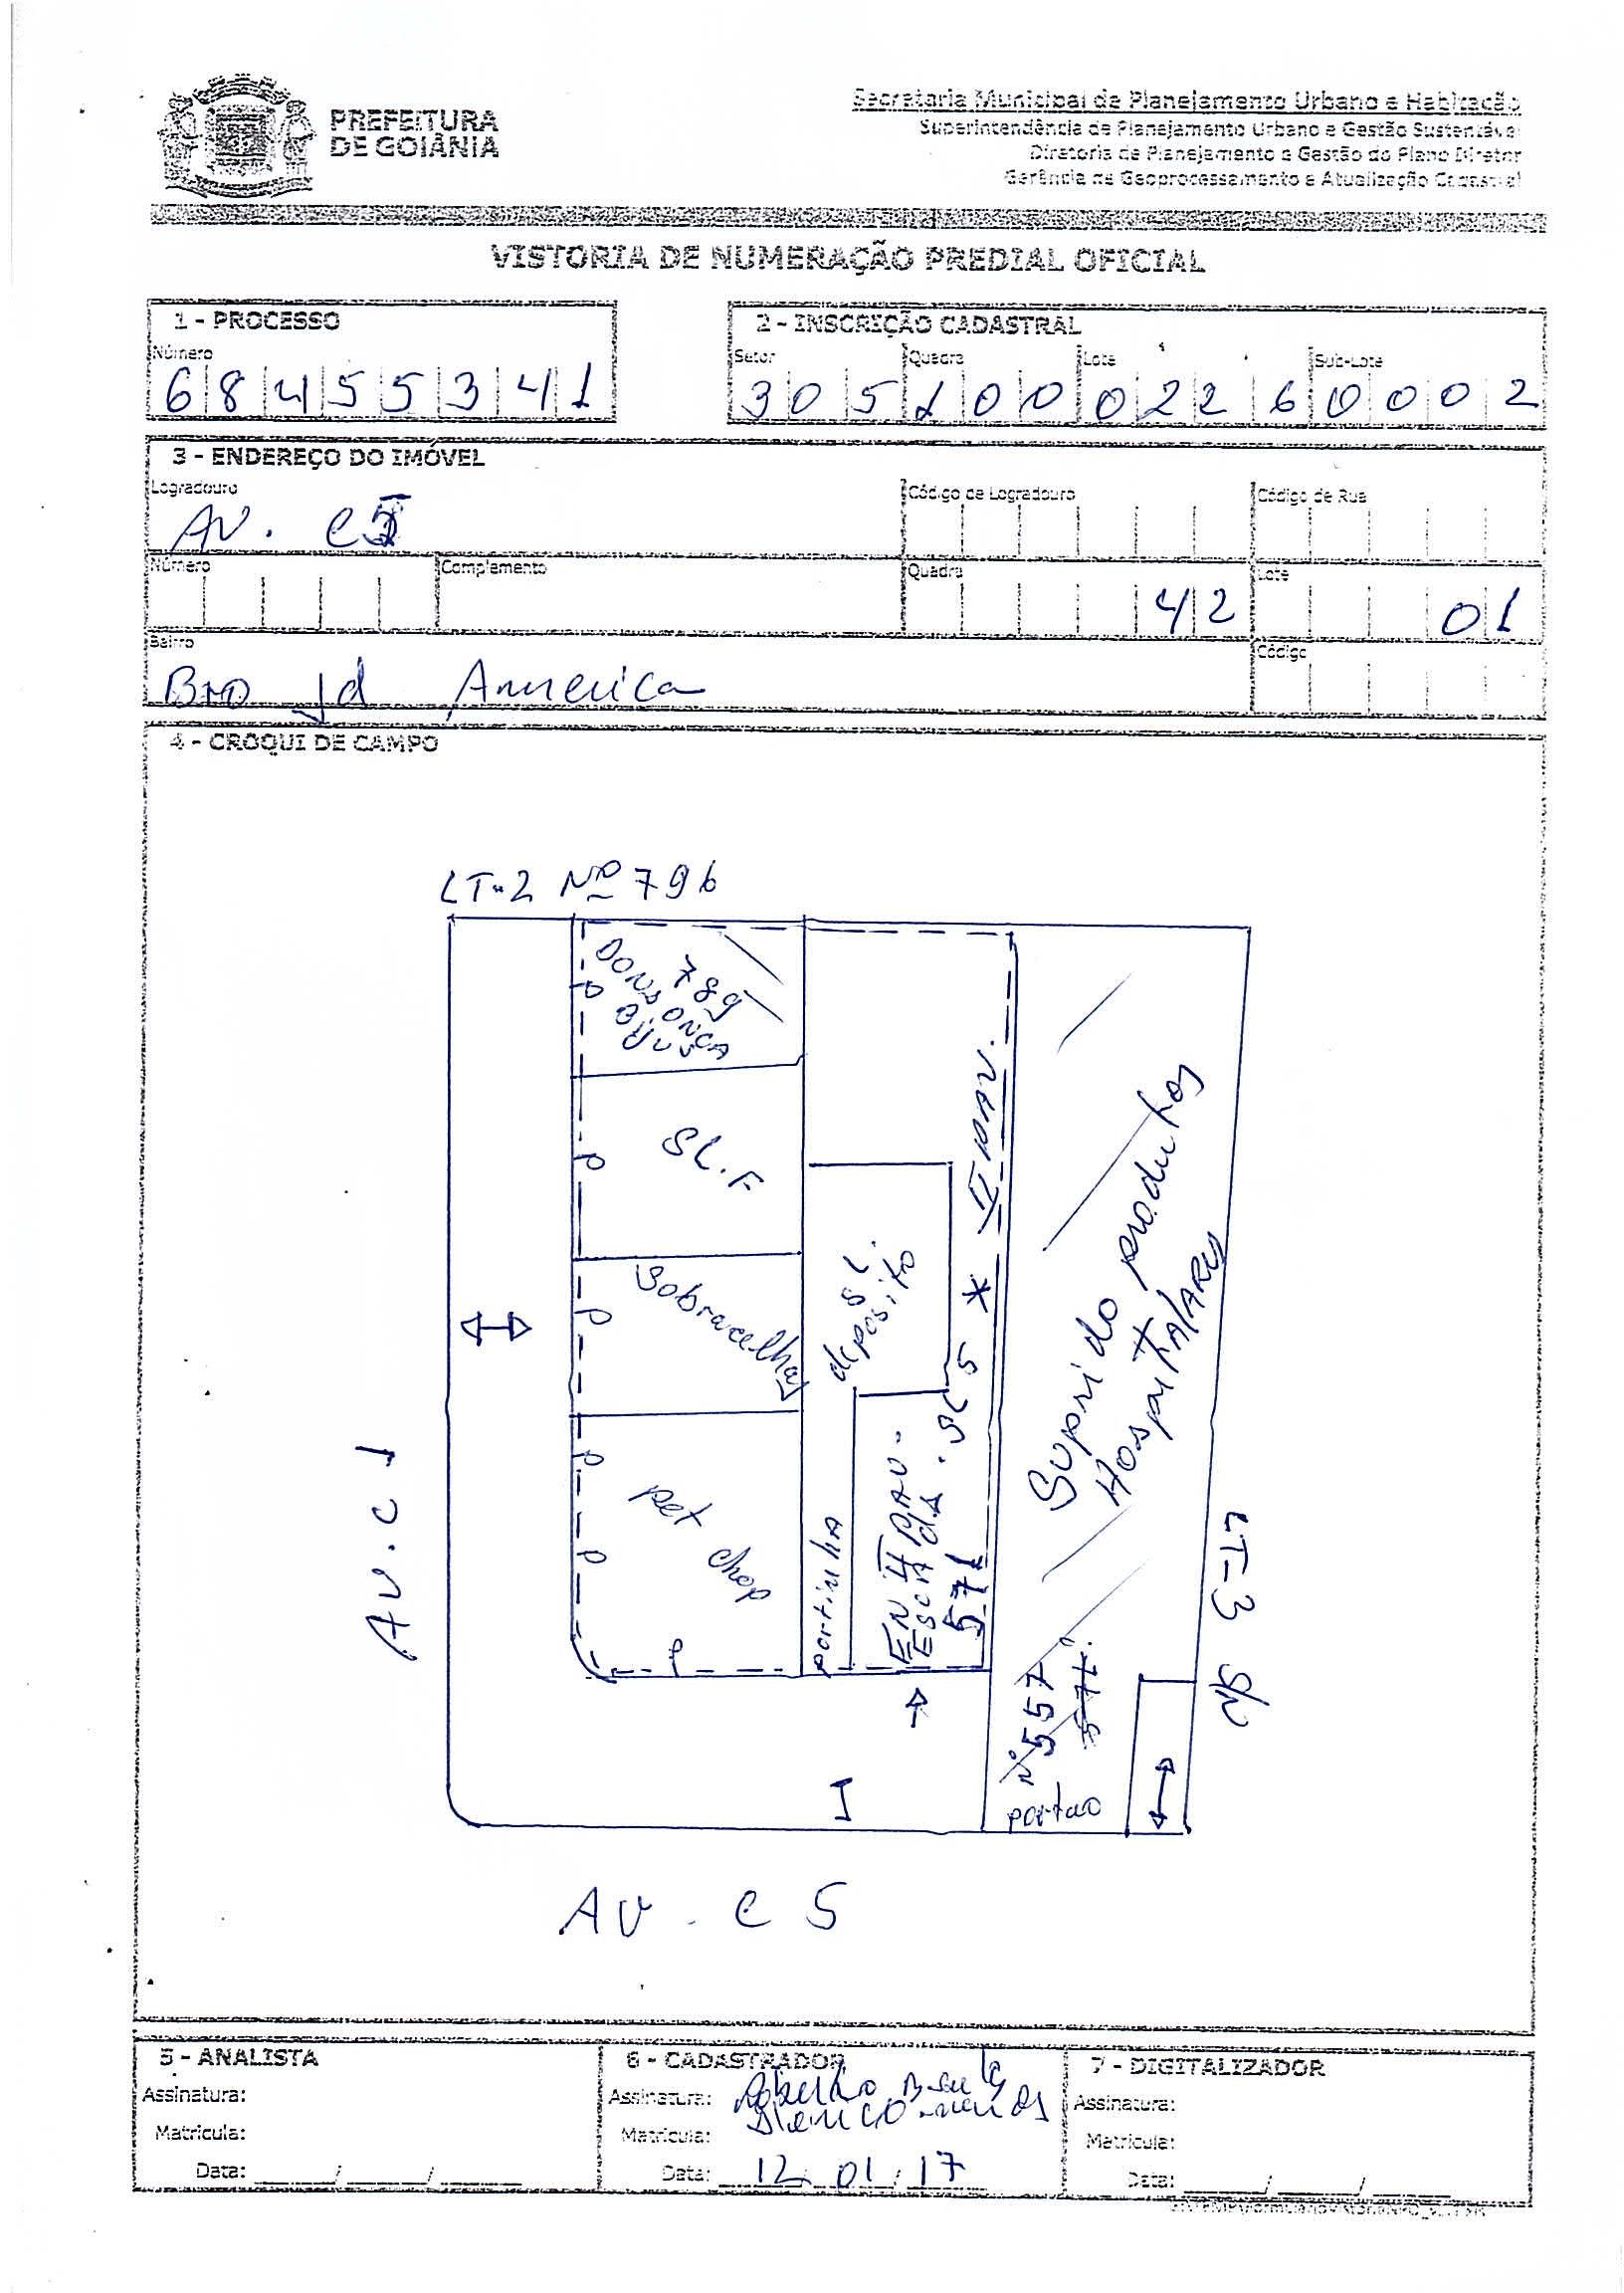 PREFEITURA
DE GOIÂNIA
Secretaria Municipal de Planejamento Urbano e Habitação
Superintendência de Planejamento Urbano e Gestão Sustentável
Diretoria de Planejamento e Gestão do Plano Diretor
Gerência de Geoprocessamento e Atualização Cadastral
VISTORIA DE NUMERAÇÃO PREDIAL OFICIAL
1 - PROCESSO
Número
68455341
2 - INSCRIÇÃO CADASTRAL
Setor Quadra Lote Sub-Lote
305 100 0226 0002
3 - ENDEREÇO DO IMÓVEL
Logradouro Código de Logradouro Código de Rua
AV. C5
Número Complemento Quadra Lote
42 01
Bairro Código
Jd America
4 - CROQUI DE CAMPO
LT-2 Nº 796
789
DONA ONÇA
BIJUS
SL.F
Sobracelhas
pet chop
SL.
deposito
portinha
EN II PAV.
ESCADA. SL 5 * II PAV.
571
Suprido produtos
HospitALARES
Nº 557
571
portao
LT-3 S/N
AV. C 1
I
AV. C 5
5 - ANALISTA
Assinatura:
Matrícula:
Data: ____/____/____
6 - CADASTRADOR
Assinatura:
Matrícula:
Data: 12/01/17
7 - DIGITALIZADOR
Assinatura:
Matrícula:
Data: ____/____/____